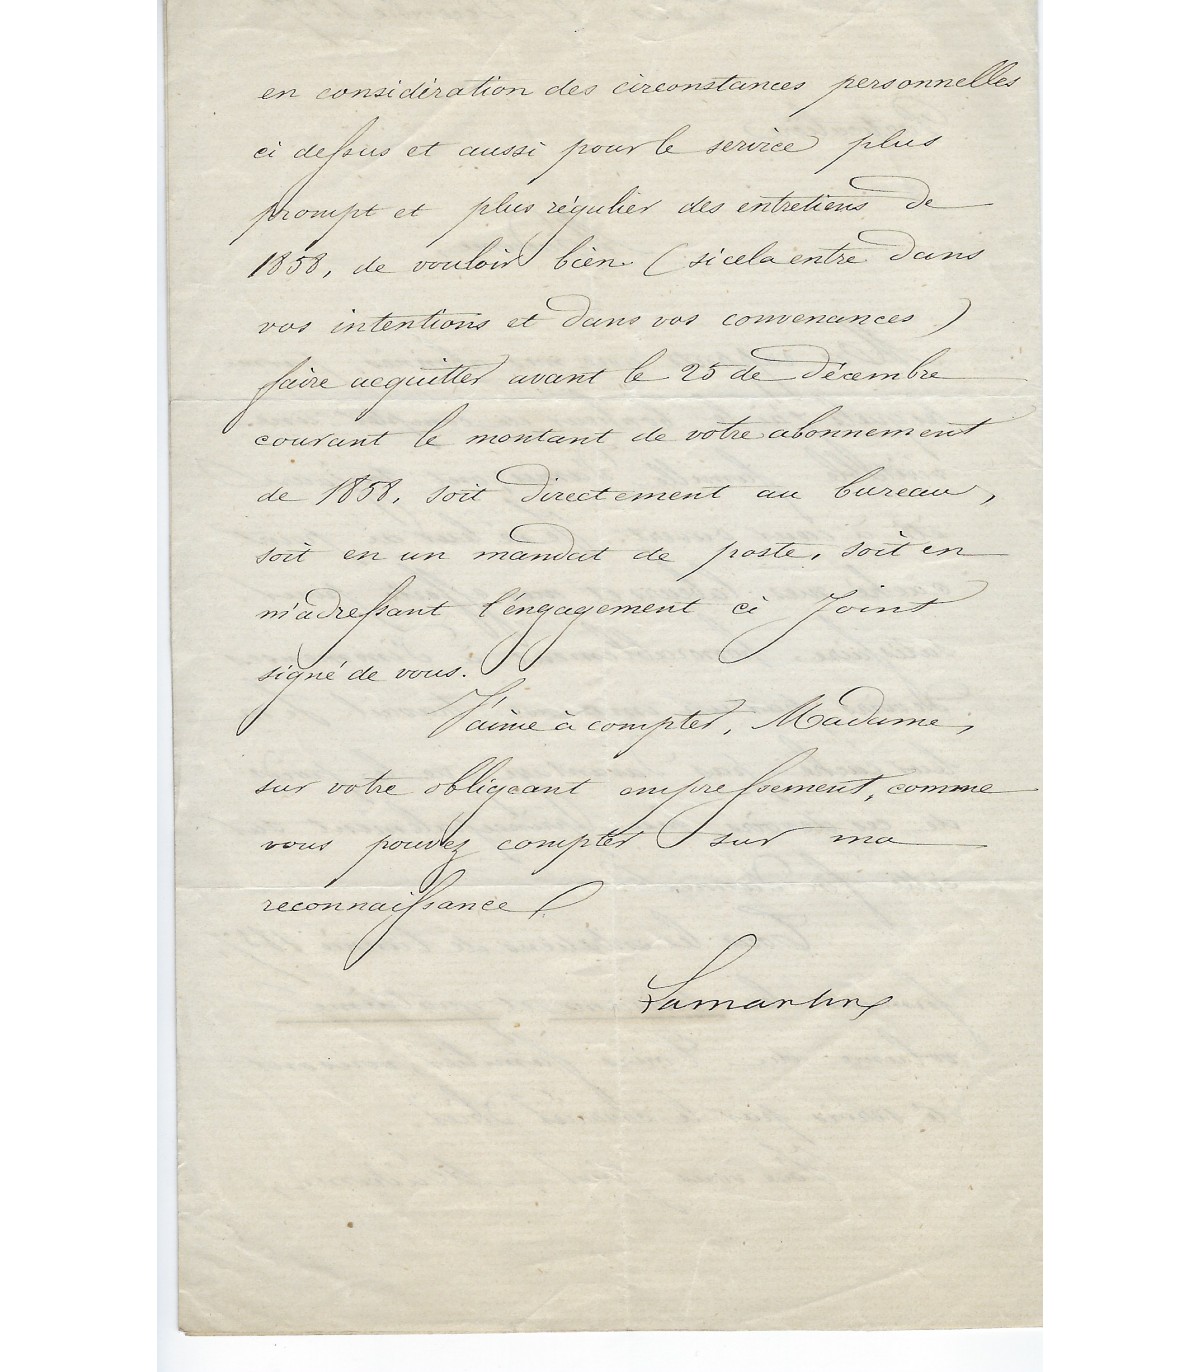 en considération des circonstances personnelles
ci dessus et aussi pour le service plus
prompt et plus régulier des entretiens de
1858, de vouloir bien (si cela entre dans
vos intentions et dans vos convenances)
faire acquitter avant le 25 de décembre
courant le montant de votre abonnement
de 1858, soit directement au bureau,
soit en un mandat de poste, soit en
m'adressant l'engagement ci joint
signé de vous.
J'aime à compter, Madame,
sur votre obligeant empressement, comme
vous pouvez compter sur ma
reconnaissance.
Lamartine